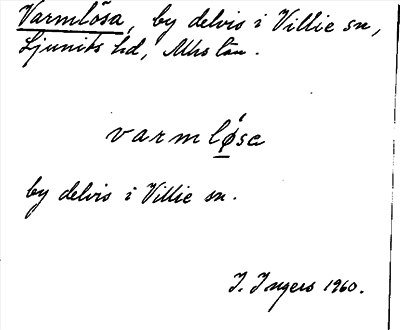 Varmlösa, by delvis i Villie sn,
Ljunits hd, Mhs län.
varmlǿsa
by delvis i Villie sn.
I. Ingers 1960.